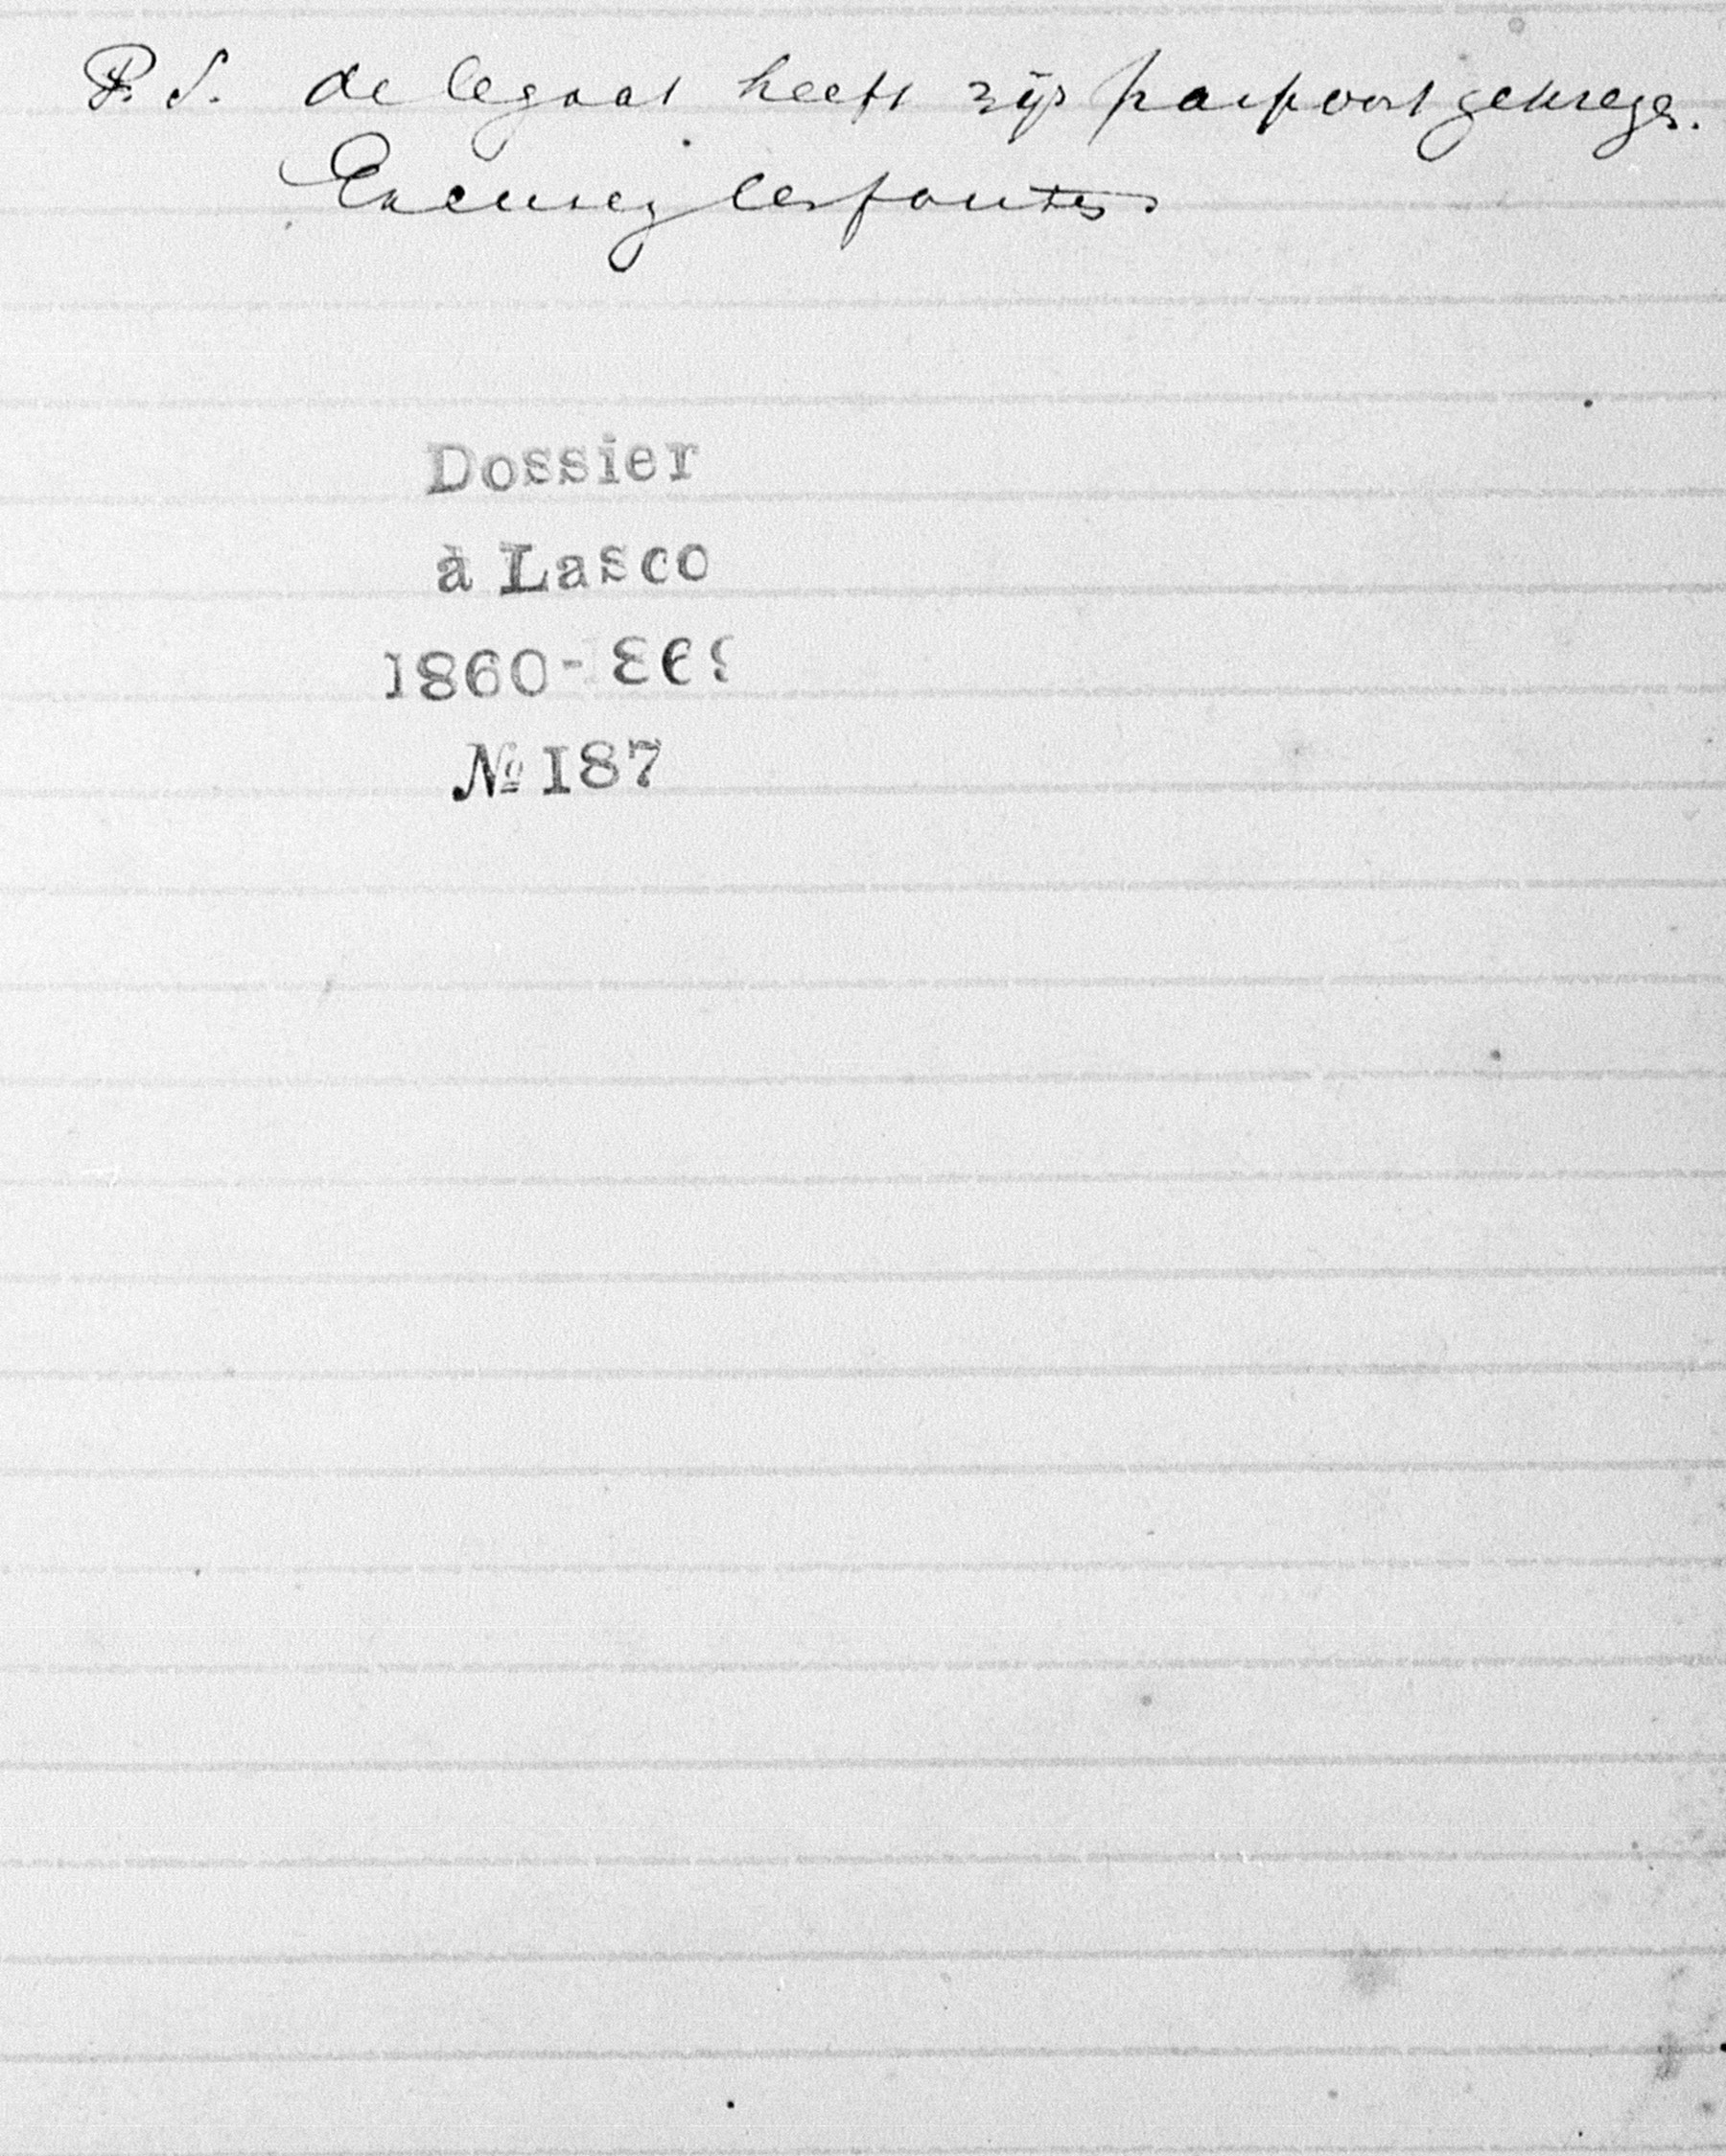 P. S. de legaat heeft zijn paspoort gekregen.
Excusez les fautes
Dossier
à Lasco
1860-
№ 187